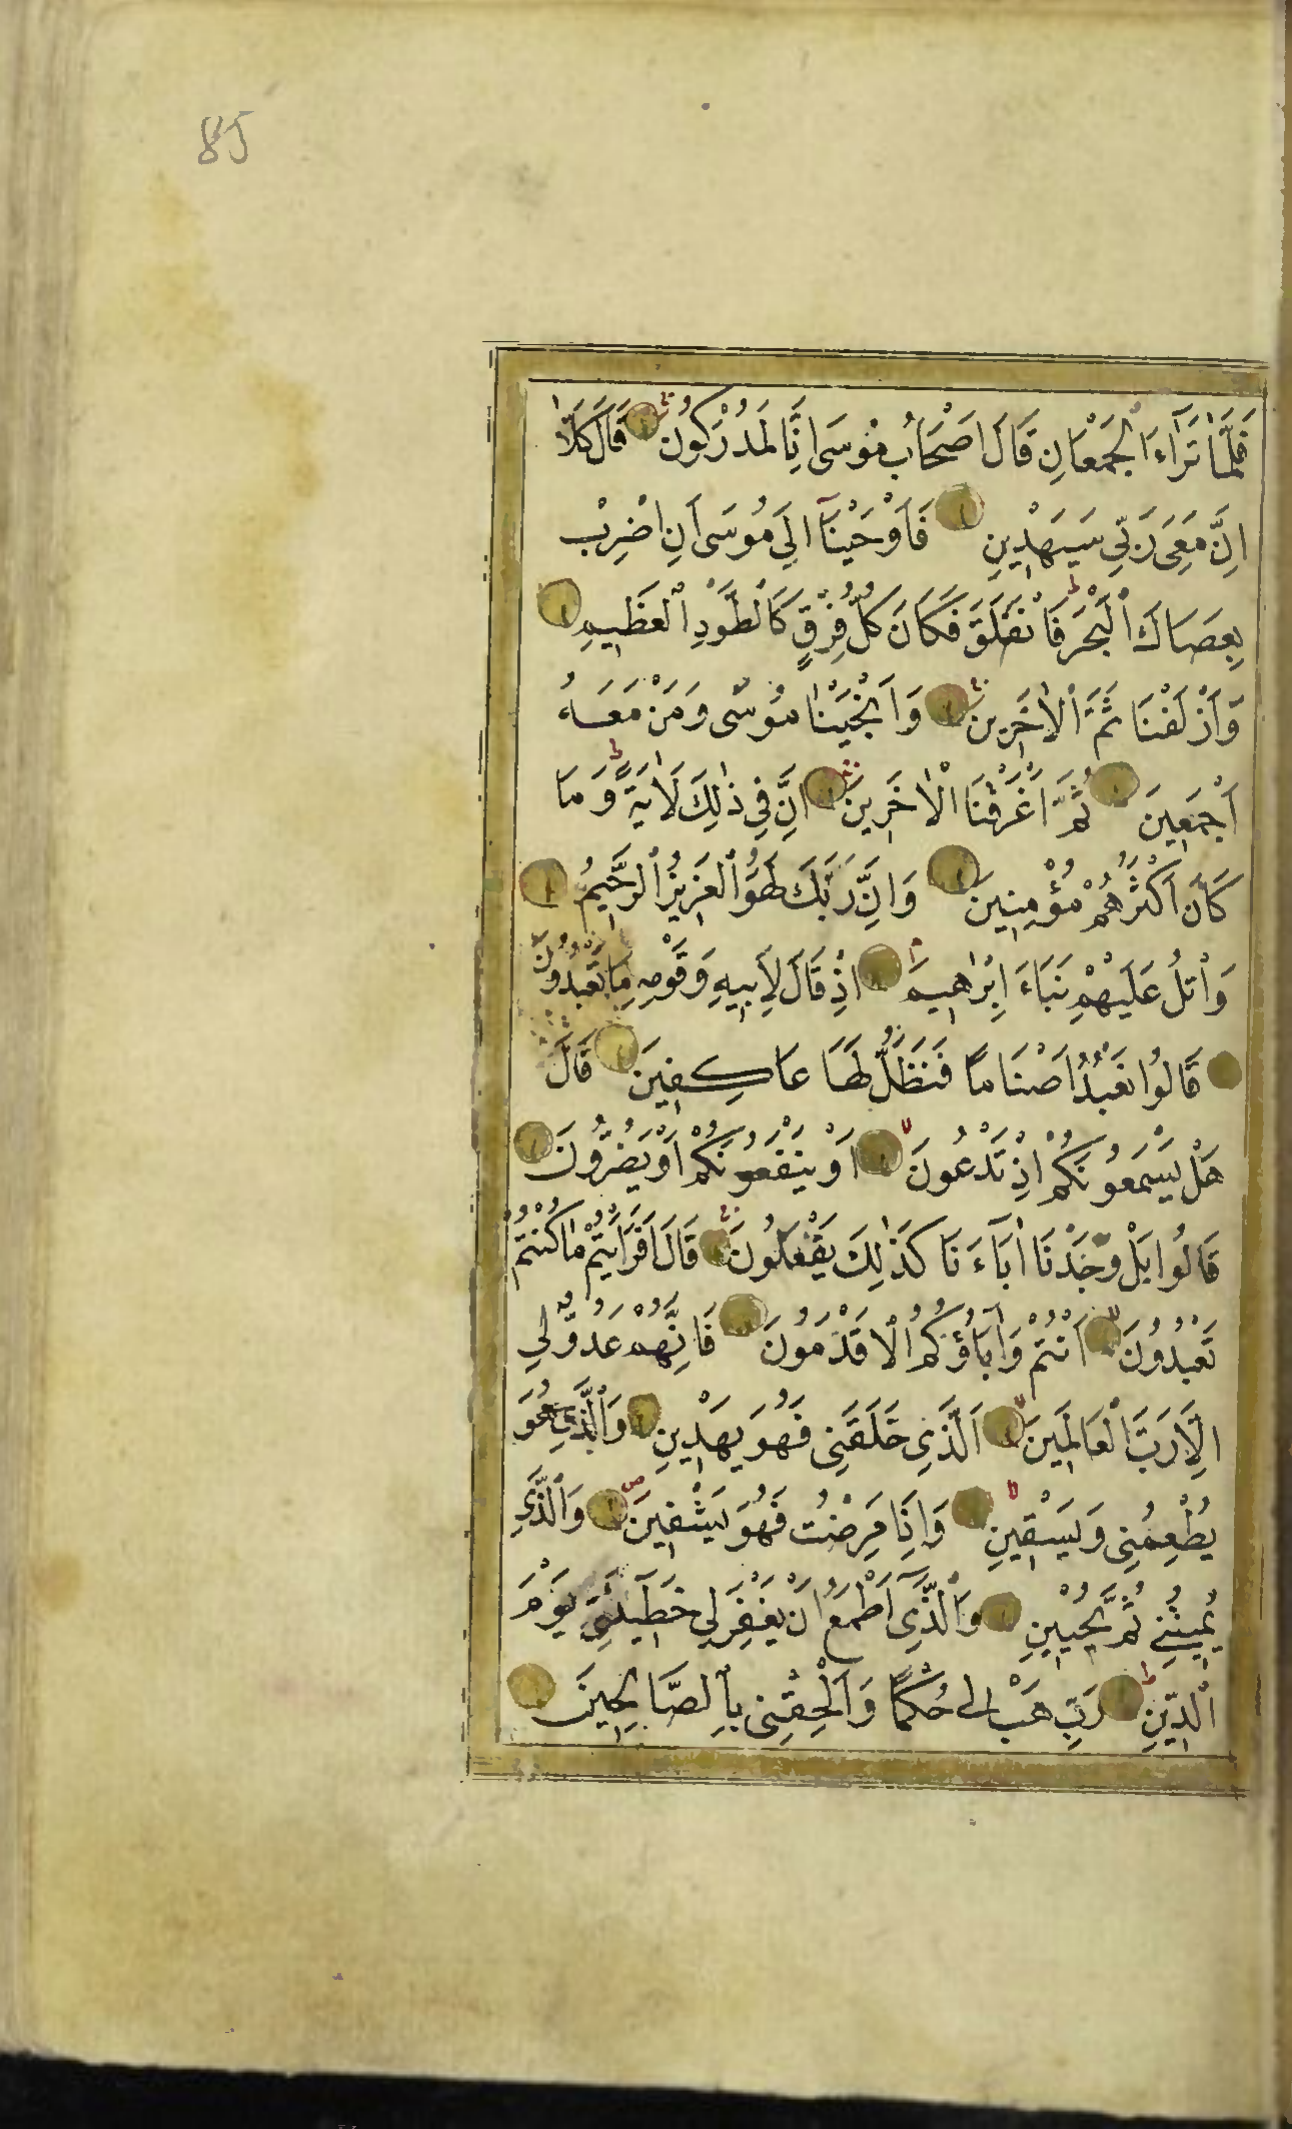 85
فَلَمَّا تَرَاءَ الْجَمْعَانِ قَالَ اَصْحَابُ مُوسَى اِنَّا لَمُدْرَكُونَ قَالَ كَلَّا
اِنَّ مَعِىَ رَبِّي سَيَهْدِينِ فَاَوْحَيْنَا اِلَي مُوسَى اَنِ اضْرِبْ
بِعَصَاكَ الْبَحْرَ فَانْفَلَقَ فَكَانَ كُلُّ فِرْقٍ كَالطَّوْدِ الْعَظِيمِ
وَاَزْلَفْنَا ثَمَّ الْاٰخَرِينَ وَاَنْجَيْنَا مُوسٰى وَمَنْ مَعَهُ
اَجْمَعِينَ ثُمَّ اَغْرَقْنَا الْاٰخَرِينَ اِنَّ فِي ذٰلِكَ لَاٰيَةً وَمَا
كَانَ اَكْثَرُهُمْ مُؤْمِنِينَ وَاِنَّ رَبَّكَ لَهُوَ الْعَزِيزُ الرَّحِيمُ
وَاتْلُ عَلَيْهِمْ نَبَاءَ اِبْرٰهِيمَ اِذْ قَالَ لِاَبِيهِ وَقَوْمِهِ مَا تَعْبُدُونَ
قَالُوا نَعْبُدُ اَصْنَامًا فَنَظَلُّ لَهَا عَاكِفِينَ قَالَ
هَلْ يَسْمَعُونَكُمْ اِذْ تَدْعُونَ اَوْ يَنْفَعُونَكُمْ اَوْ يَضُرُّونَ
قَالُوا بَلْ وَجَدْنَا اٰبَاءَنَا كَذٰلِكَ يَفْعَلُونَ قَالَ اَفَرَاَيْتُمْ مَا كُنْتُمْ
تَعْبُدُونَ اَنْتُمْ وَاٰبَاؤُكُمُ الْاَقْدَمُونَ فَاِنَّهُمْ عَدُوٌّ لِي
اِلَّا رَبَّ الْعَالَمِينَ اَلَّذِي خَلَقَنِى فَهُوَ يَهْدِينِ وَالَّذِي هُوَ
يُطْعِمُنِى وَيَسْقِينِ وَاِذَا مَرِضْتُ فَهُوَ يَشْفِينِ وَالَّذِي
يُمِيتُنِي ثُمَّ يُحْيِينِ وَالَّذِي اَطْمَعُ اَنْ يَغْفِرَ لِي خَطِيئَتِي يَوْمَ
الدِّينِ رَبِّ هَبْ لِي حُكْمًا وَاَلْحِقْنِى بِالصَّالِحِينَ